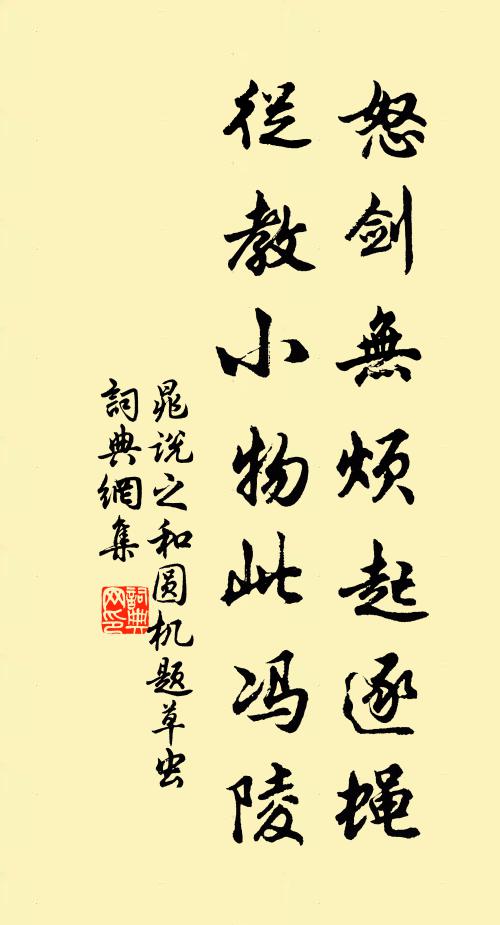 怒剑無烦起逐蝇
從教小物此冯陵
晁说之和圆机题草虫
詞典網集
詞典网印